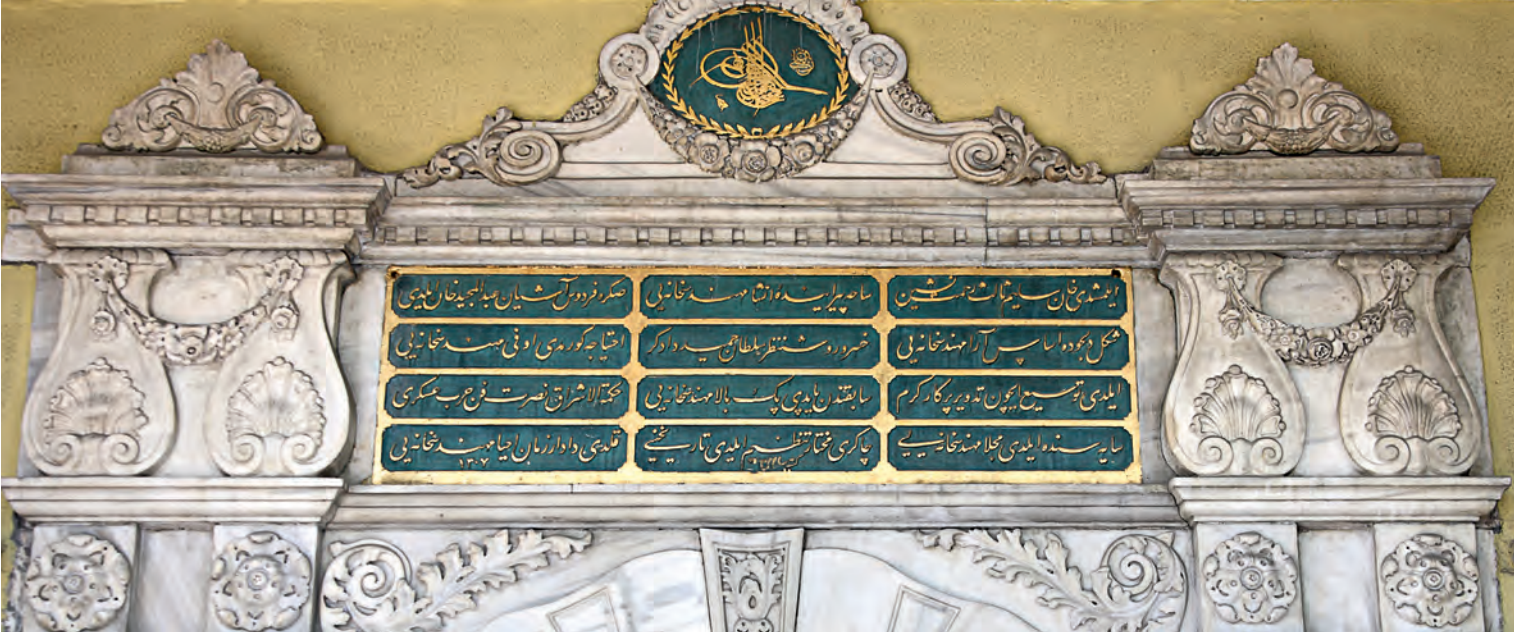 ایلمشدی خان سلیم ثالث جنت نشین
ساحه پیراینده انشا مهندسخانه یی
صکره فردوس آشیان عبدالمجید خان ایلدی
شکل دلجوده اساس آرا مهندسخانه یی
خسرو روشن نظر سلطان حمید دادکر
احتیاجه کورمدی اوفی مهندسخانه یی
ایلدی توسیع ایچون تدویر پرکار کرم
سابقندن یاپدی پك بالا مهندسخانه یی
حکمة الاشراق نصرت فن حرب عسکری
سایه سنده ایلدی مجلا مهندسخانه یی
چاکری مختار تنظیم ایلدی تاریخنی
قلدی دادار زمان احیا مهندسخانه یی
۱۳۰۷